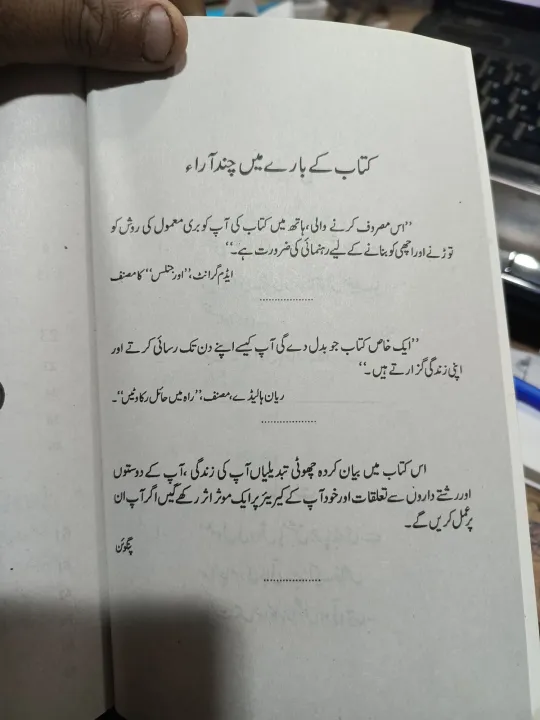 کتاب کے بارے میں چند آراء
”اس مصروف کرنے والی، ہاتھ میں کتاب کی آپ کو بری معمول کی روش کو
توڑنے اور اچھی کو بنانے کے لیے رہنمائی کی ضرورت ہے۔“
ایڈم گرانٹ، ”اورجنلس“ کا مصنف
”ایک خاص کتاب جو بدل دے گی آپ کیسے اپنے دن تک رسائی کرتے اور
اپنی زندگی گزارتے ہیں۔“
ریان ہالیڈے، مصنف، ”راہ میں حائل رکاوٹیں“۔
اس کتاب میں بیان کردہ چھوٹی تبدیلیاں آپ کی زندگی، آپ کے دوستوں
اور رشتے داروں سے تعلقات اور خود آپ کے کیریئر پر ایک موثر اثر رکھے گیں اگر آپ ان
پر عمل کریں گے۔
پنگوئن